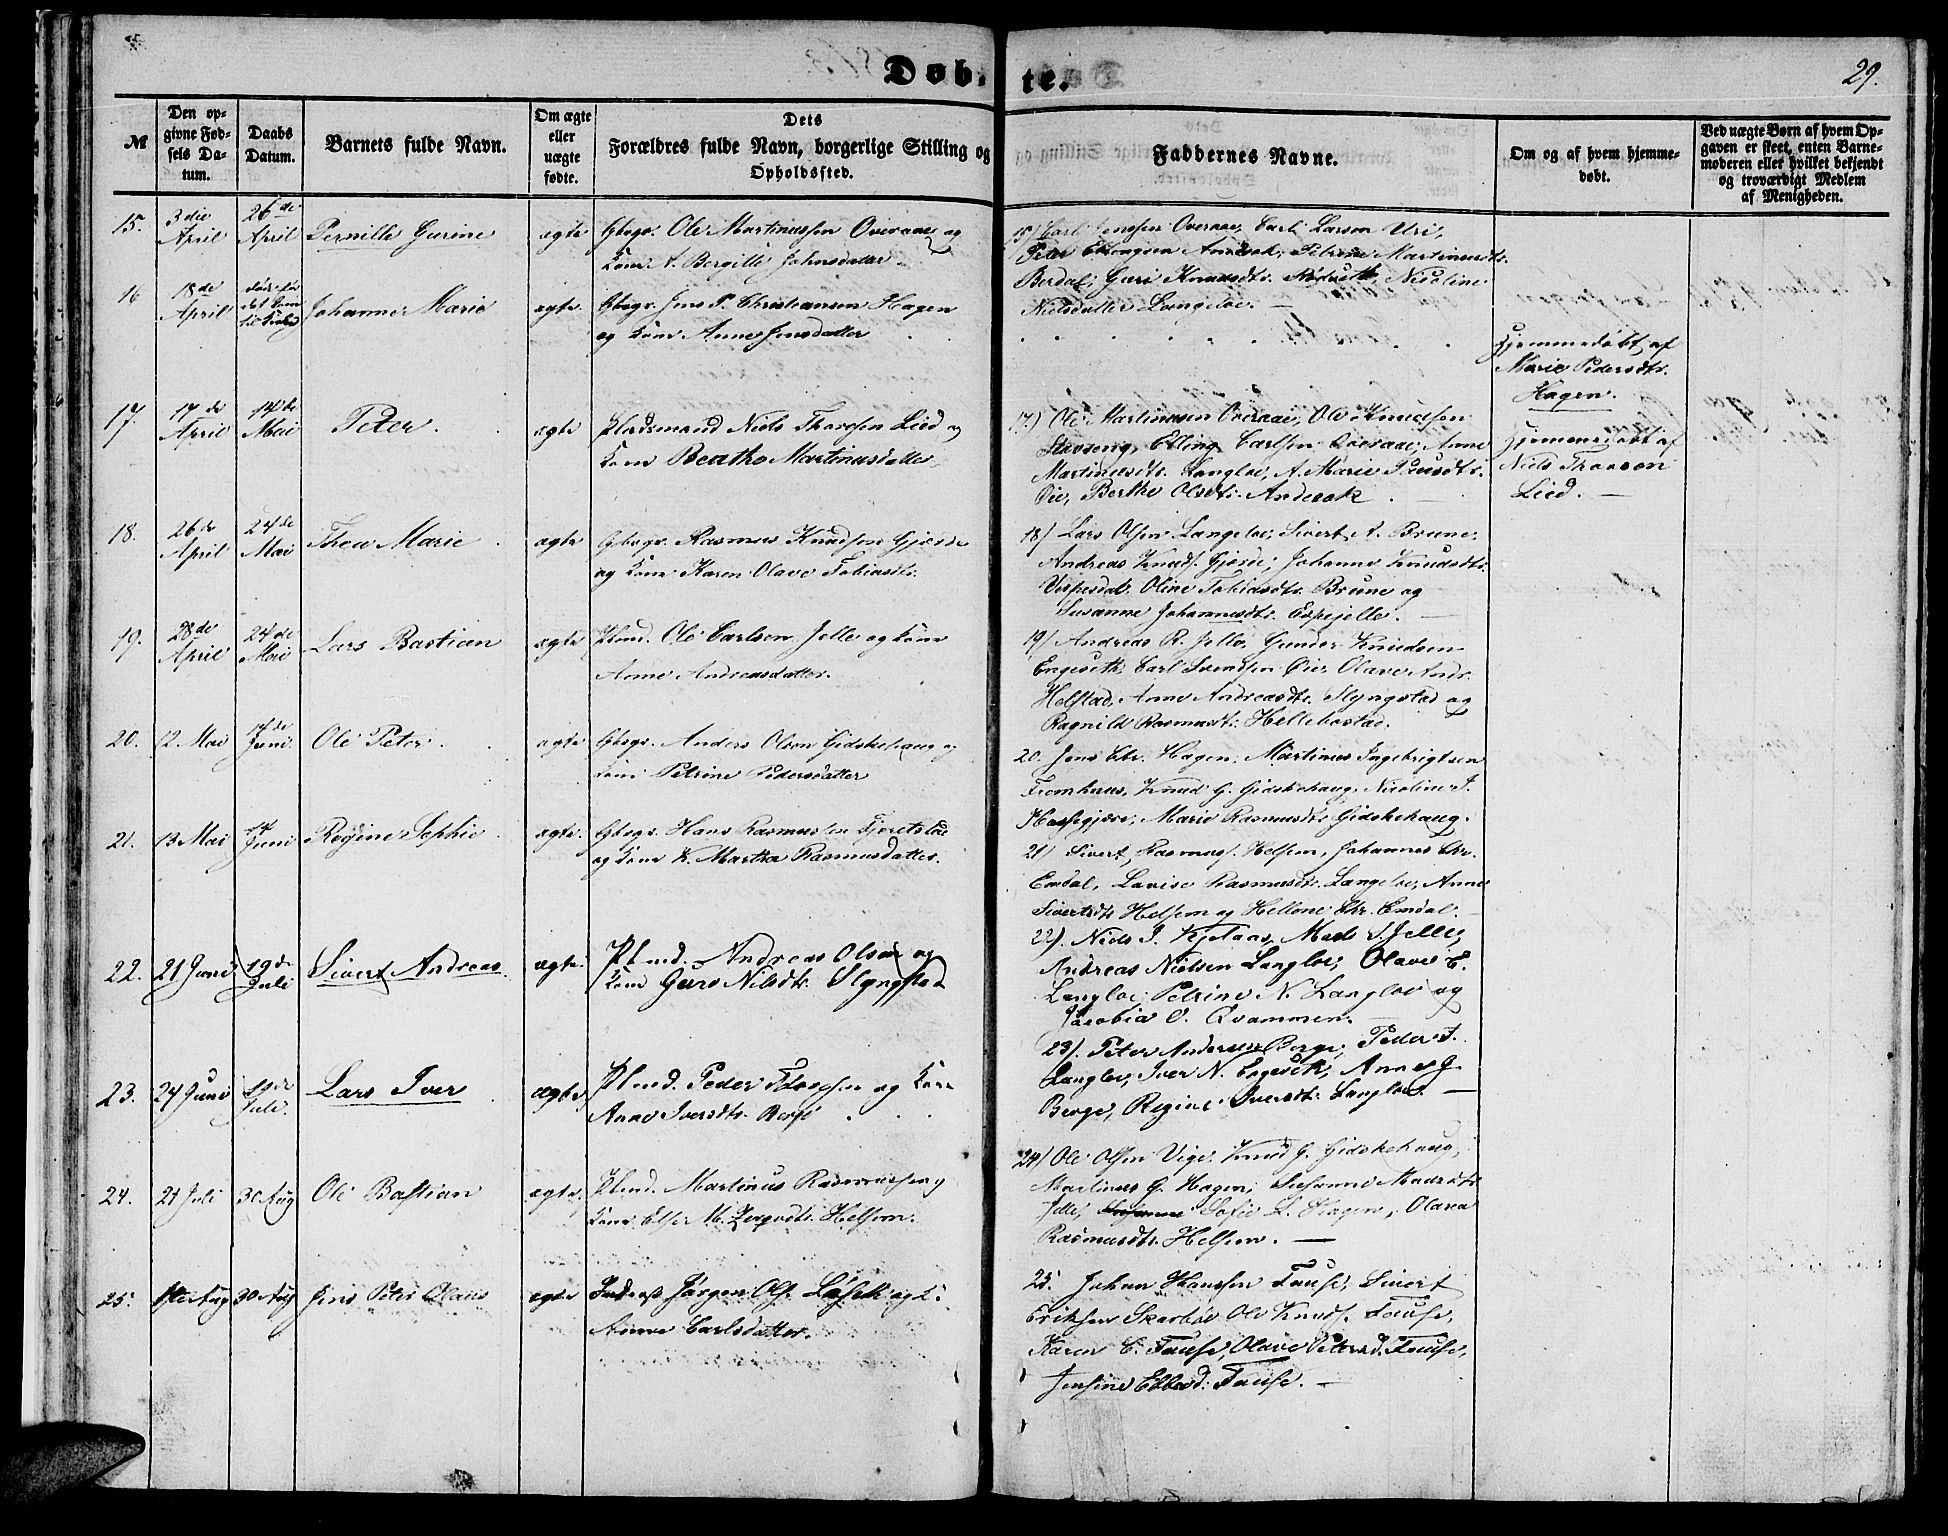 Døbte.
29.
№
Den opgivne Fødsels Datum.
Daabs Datum.
Barnets fulde Navn.
Om ægte eller uægte fødte.
Dets Forældres fulde Navn, borgerlige Stilling og Opholdssted.
Faddernes Navne.
Om og af hvem hjemmedøbt.
Ved uægte Børn af hvem Opgaven er skeet, enten Barnemoderen eller hvilket bekjendt og troværdigt Medlem af Menigheden.
15. 3die April 26de April Pernille Gurine ægte Gbgr. Ole Martinussen Overaae og
Kone A. Bergitte Johnsdatter
15) Carl Overaae, Carl Larsen Uri,
Peter Andesak, Petrine Martinusdtr.
Berdal, Guri Knudsdtr. Nicoline
Nielsdatter Langeloe.
16 18de April Johanne Marie ægte Gbgr. Jens P. Christiansen Hagen
og Kone Anne Jensdatter
Hjemmedøbt af
Marie Pedersdtr.
Hagen.
17. 17de April Mai Peter. ægte Pladsmand Niels Thoresen Lied og
Kone Beathe Martinusdatter
17.) Ole Martinusen Overaae, Ole Knudsen
Elling Carlsen Overaae, Anne
Martinusdtr. Langloe, A. Marie
Øie, Berthe Olsdtr. Andesak
Hjemmedøbt af
Niels Thoresen
Lied.
18. 26de April 24de Mai Thea Marie ægte Gbgr. Rasmus Knudsen Gjærde
og Kone Karen Olave Tobiasdtr.
18) Lars Olsen Langeloe, Sivert A. Brune,
Andreas Knuds. Gjærde, Johanne Knudsdtr.
Vestresdal, Oline Tobiasdtr. Brune og
Susanne Johannesdtr. Espejelle.
19. 28de April 24de Mai Lars Bastian ægte Plmd. Ole Carlsen Jelle og Kone
Anne Andreasdatter.
19) Andreas R. Jelle, Gunder Knudsen
Engeseth, Carl Svendsen Øie, Olave Andr.
Helstad, Anne Andreasdtr. Slyngstad og
Ragnild Rasmusdtr. Hellebostad.
20. 12 Mai Juni Ole Peter. ægte Gbgr. Anders Olsen Gidskehaug og
Kone Petrine Pedersdatter
20. Jens Chr. Hagen, Martinus Ingebrigtsen
Fremhuus, Knud G. Gidskehaug, Nicoline J.
Marie Rasmusdtr. Gidskehaug.
21. 13 Mai 14 Juni Regine Sophie ægte. Gbgr. Hans Rasmussen Fjørtoft
og Kone K. Martha Rasmusdatter.
21) Sivert Rasmus. Helsem, Johannes Chr.
Emdal, Lovise Rasmusdtr. Langeloe, Anne
Sivertsdtr. Helsem og Hellene Chr. Emdal.
22. 21 Juni 19de Juli Sivert Andreas ægte. Plmd. Andreas Olsen og
Kone Guro Nilsdtr. Slyngstad
22). Niels J. Kjelaas, Mads S. Jelle,
Andreas Nielsen Langloe, Olave E.
Langloe, Petrine N. Langloe og
Jacobia O. Qvammen.
23. 24 Juni 19de Juli. Lars Iver ægte Plmd. Peder og Kone
Anne Iversdtr. Berge
23). Peter Andersen Berge, Peder J.
Langloe, Iver N. Engesek, Anne G.
Berge, Regine Iversdtr. Langloe.
24. 21 Juli 30 Aug Ole Bastian ægte. Plmd. Martinus Rasmussen og
Kone Else M. Helsem.
24) Ole Olsen Vige, Knud G. Gidskehaug,
Martinus G. Hagen, Susanne Madsdtr.
Jelle, Sofie L. Hagen, Olava
Rasmusdtr. Helsem.
25. 1ste Aug 30 Aug Jens Peter Olaus ægte Inderst Jørgen Ols. og K.
Anne Carlsdatter.
25. Johan Hanssen Fause, Sivert
Eriksen Skarbøe, Ole Knuds. Fause,
Karen C. Fause, Olave Petersd. Fause,
Jensine Ebbesd. Fause.